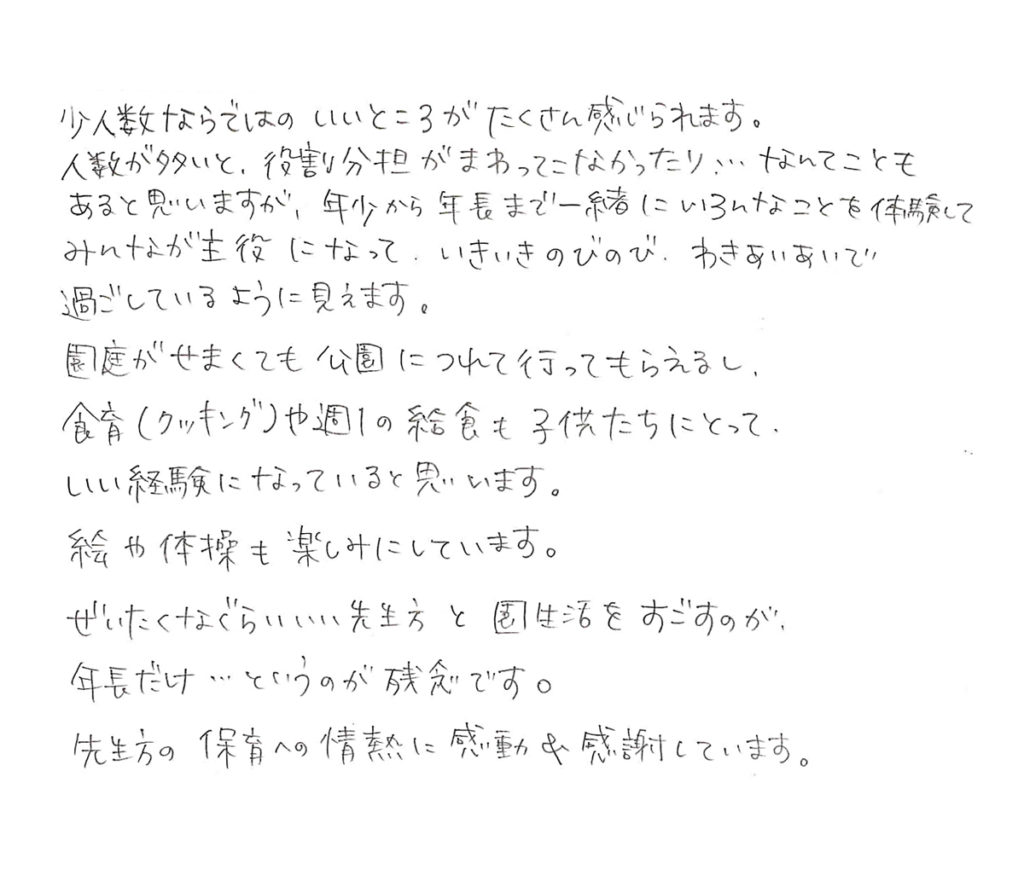 少人数ならではの いいところが たくさん感じられます。
人数が多いと、役割分担がまわってこなかったり… なんてことも
あると思いますが、年少から年長まで一緒にいろんなことを体験して
みんなが主役になって、いきいきのびのび、わきあいあいで
過ごしているように見えます。
園庭がせまくても公園につれて行ってもらえるし、
食育(クッキング)や週1の給食も子供たちにとって、
いい経験になっていると思います。
絵や体操も楽しみにしています。
ぜいたくなぐらいいい先生方と園生活をすごすのが、
年長だけ…というのが残念です。
先生方の保育への情熱に感動&感謝しています。